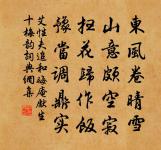 東風卷晴雪
山意頗空寂
扫花歸作飯
豫當調鼎实
艾性夫追和晦庵猷生
十梅韵詞典網集